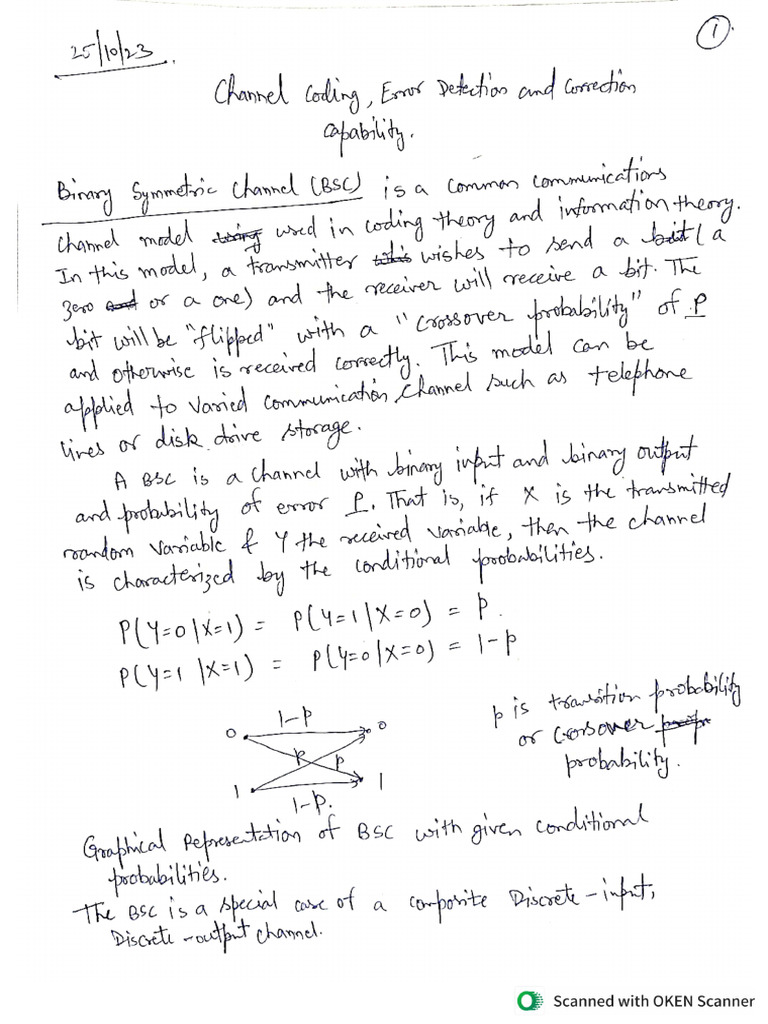 25/10/23.
1
Channel Coding, Error Detection and Correction
Capability.
Binary Symmetric Channel (BSC) is a common communications
channel model used in coding theory and information theory.
In this model, a transmitter wishes to send a bit (a
zero or a one) and the receiver will receive a bit. The
bit will be "flipped" with a "crossover probability" of P
and otherwise is received correctly. This model can be
applied to varied communication channel such as telephone
lines or disk drive storage.
A BSC is a channel with binary input and binary output
and probability of error P. That is, if X is the transmitted
random variable & Y the received variable, then the channel
is characterized by the conditional probabilities.
P(Y=0|X=1) = P(Y=1|X=0) = p.
P(Y=1|X=1) = P(Y=0|X=0) = 1-p
p is transition probability
or crossover
probability.
1-p
0 0
p p
1 1
1-p.
Graphical Representation of BSC with given conditional
probabilities.
The BSC is a special case of a composite Discrete-input,
Discrete-output channel.
Scanned with OKEN Scanner